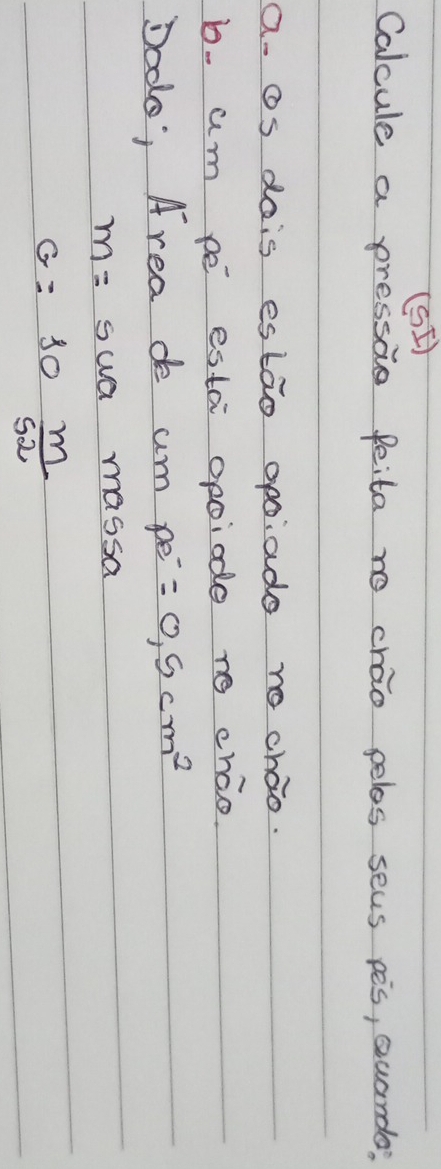 (SI)
Calcule a pressão feita no chão pelos seus pés, quando:
a- os dois estão apoiado no chão.
b- um pé está apoiado no chão.
Dado; Área de um pé = 0,5 cm²
m = sua massa
G = 10 m/s2